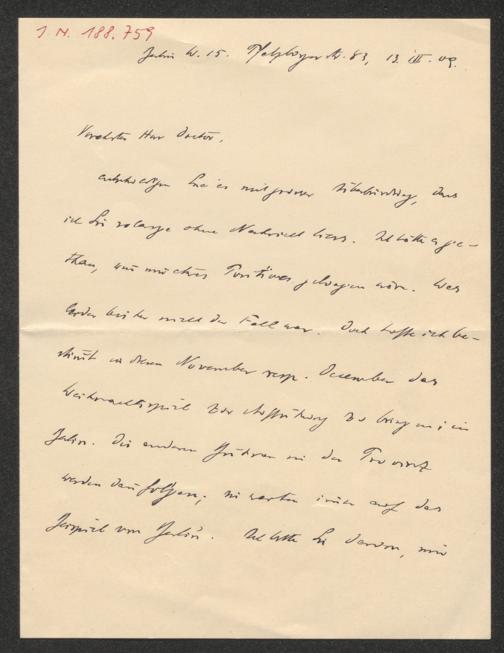 I. N. 188.759
Berlin W. 15. Pfalzburger Str. 83, 13. III. 09.
Verehrter Herr Doctor,
entschuldigen Sie es mit grosser Überbürdung, dass
ich Sie so lange ohne Nachricht liess. Ich hätte es ge-
than, wenn mir etwas Positives gelungen wäre. Was
leider bisher nicht der Fall war. Doch hoffe ich be-
stimmt in diesem November resp. December das
Weihnachtsspiel zur Aufführung zu bringen; in
Berlin. Die anderen Bühnen in der Provinz
werden dann folgen; sie warten immer auf das
Beispiel von Berlin. Ich bitte Sie darum, mir